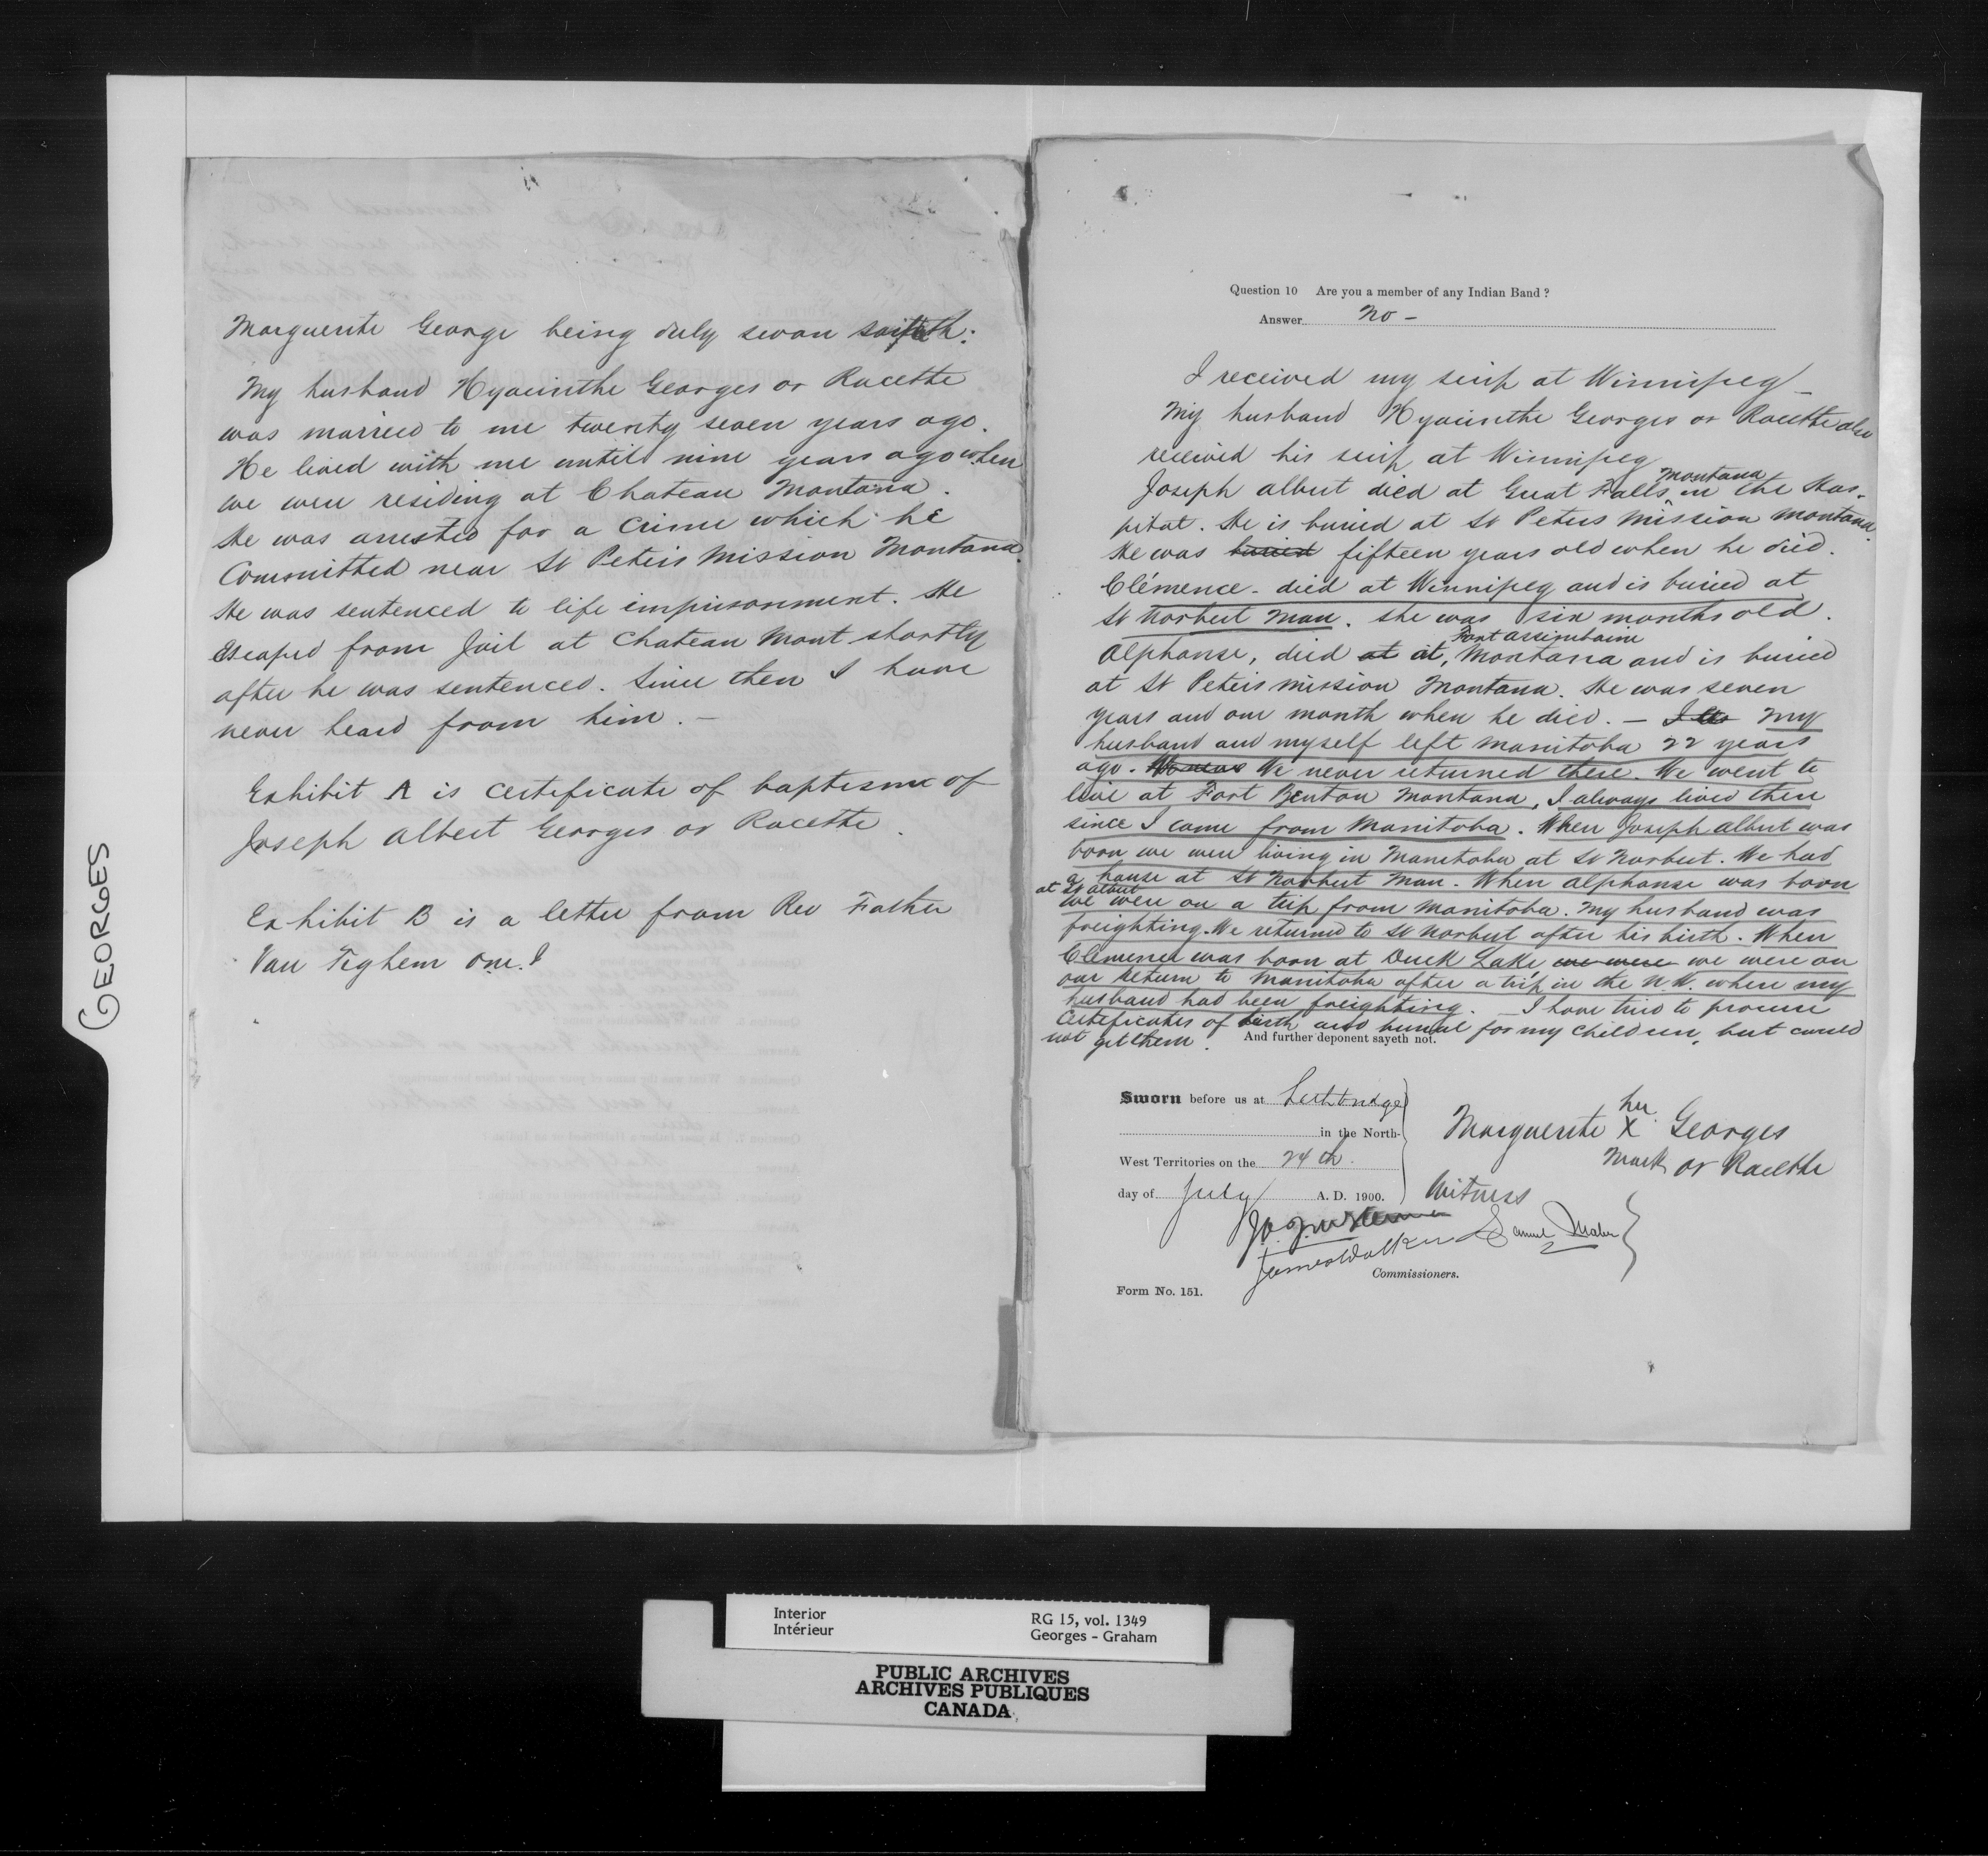 GEORGES
Marguerite George being duly swon saith:
My husband Hyacinthe Georges or Racette
was married to me twenty seven years ago.
He lived with me until nine years ago when
we were residing at Chateau Montana.
He was arrested for a crime which he
Committed near St Peters Mission Montana.
He was sentenced to life imprisonment. He
escaped from Jail at Chateau Mont. shortly
after he was sentenced. Since then I have
never heard from him. —
Exhibit A is certificate of baptisme of
Joseph Albert Georges or Racette.
Exhibit B is a letter from Rev Father
Van Tighem O.M.I
Question 10 Are you a member of any Indian Band ?
Answer No -
I received my scrip at Winnipeg -
My husband Hyacinthe Georges or Racette also
received his scrip at Winnipeg
Joseph Albert died at Great Falls, Montana in the Hos-
pital. He is buried at St Peters Mission Montana.
He was buried fifteen years old when he died.
Clémence - died at Winnipeg and is buried at
St Norbert Man. She was six months old.
Alphonse, died at at, Fort Assiniboine Montana and is buried
at St Peters Mission Montana. He was seven
years and one month when he died. — My
husband and myself left Manitoba 22 years
ago. We never returned there. We went to
live at Fort Benton Montana, I always lived there
since I came from Manitoba. When Joseph Albert was
born we were living in Manitoba at St Norbert. We had
a house at St Norbert Man. When Alphonse was born
at St Albert we were on a trip from Manitoba. My husband was
freighting. We returned to St Norbert after his birth. When
Clemence was born at Duck Lake, we were we were on
our return to Manitoba after a trip in the N.W. where my
husband had been freighting. — I have tried to procure
Certificates of birth and burial for my children, but could
not get them. And further deponent sayeth not.
Sworn before us at Lethbridge
in the North-
West Territories on the 24th
day of July A. D. 1900.
Marguerite her X mark Georges
or Racette
Witness
James Walker Samuel Maber
Commissioners.
Form No. 151.
Interior
Intérieur
RG 15, vol. 1349
Georges - Graham
PUBLIC ARCHIVES
ARCHIVES PUBLIQUES
CANADA